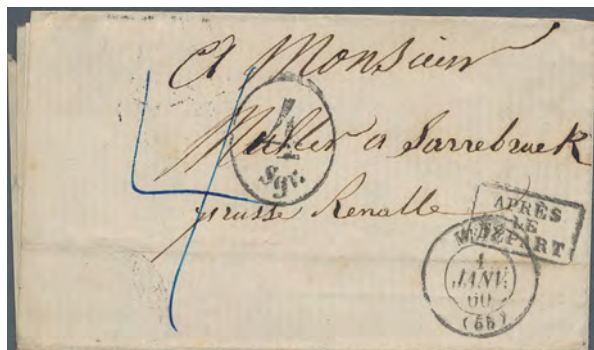 A Monsieur
Muller a Sarrebruck
prusse Renalle
4
4
sgr.
APRÈS
LE
DÉPART
METZ
1
JANV.
60
(55)